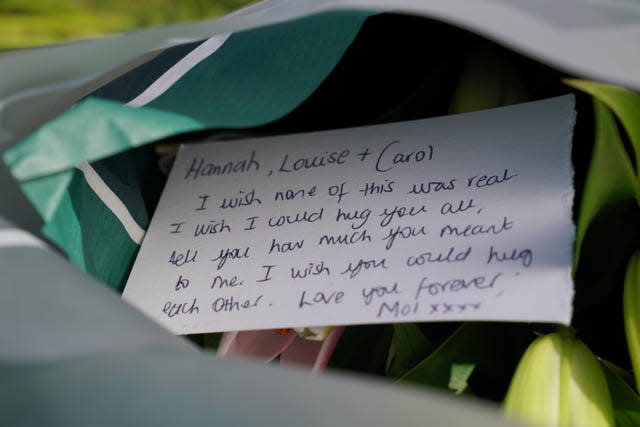 Hannah, Louise + Carol
I wish none of this was real.
I wish I could hug you all,
tell you how much you meant
to me. I wish you could hug
each other. Love you forever.
Mol xxxx